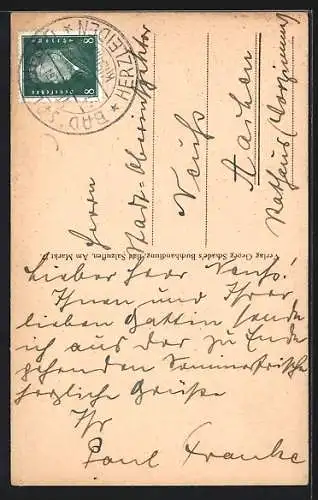 8 8
Deutsches Reich
BAD SALZUFLEN
HERZLEIDEN
Herrn
Stadt-Oberinspektor
Neuhs
Aachen
Rathaus
Verlag Georg Schade's Buchhandlung, Bad Salzuflen, Am Markt
Lieber Herr Neuhs!
Ihnen und Ihrer
lieben Gattin sende
ich aus der zu Ende
gehenden Sommerfrische
herzliche Grüße
Ihr
Paul Franke